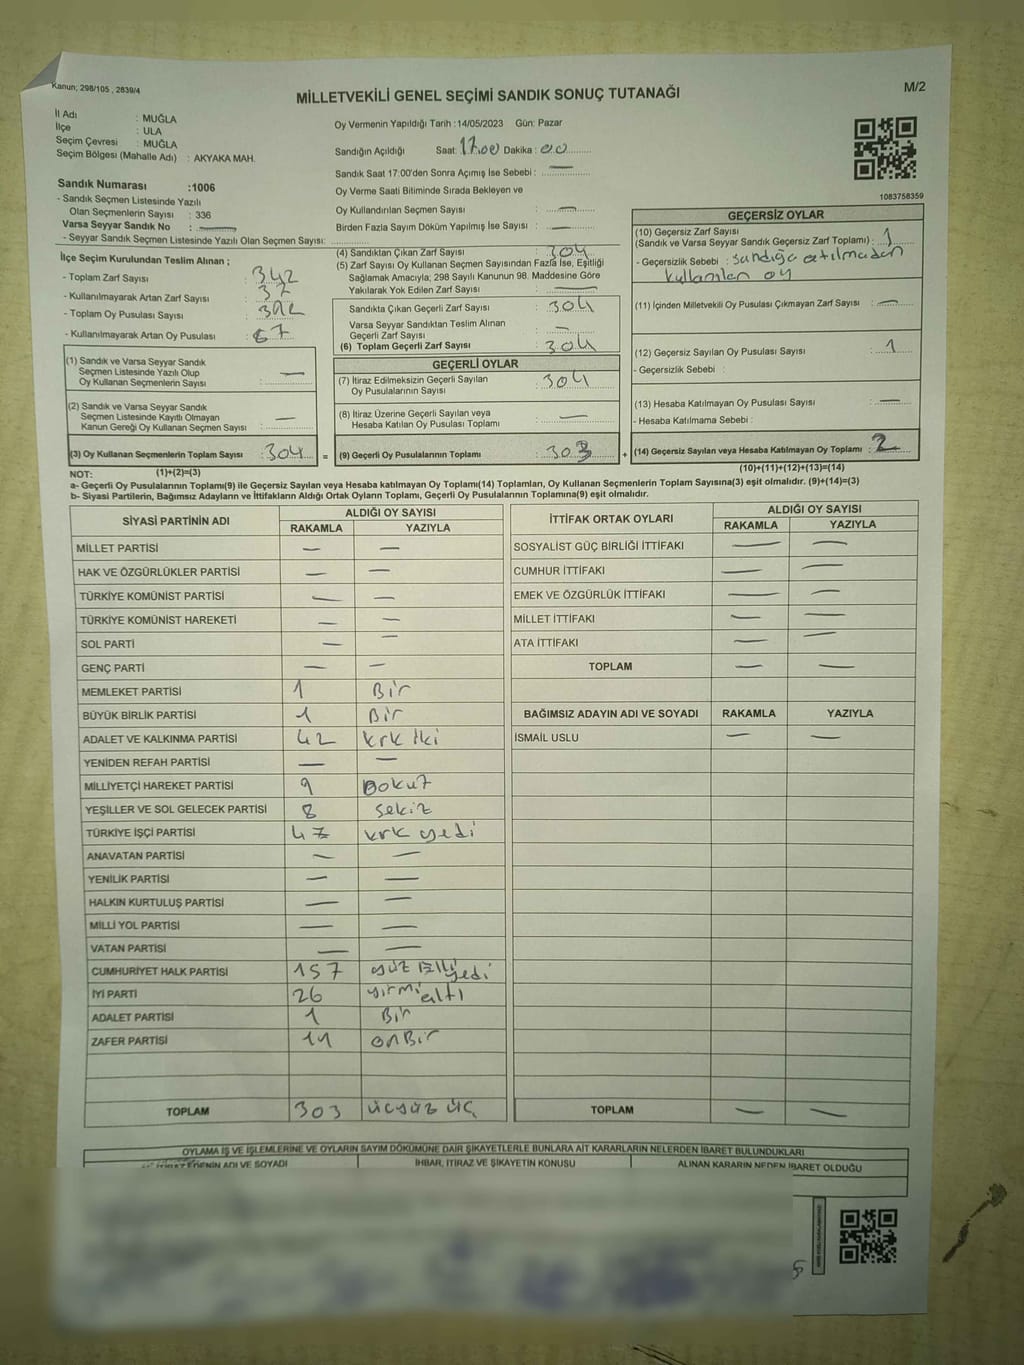 Kanun; 298/105 , 2839/4
MİLLETVEKİLİ GENEL SEÇİMİ SANDIK SONUÇ TUTANAĞI
M/2
İl Adı : MUĞLA
İlçe : ULA
Seçim Çevresi : MUĞLA
Seçim Bölgesi (Mahalle Adı) : AKYAKA MAH.
Sandık Numarası :1006
- Sandık Seçmen Listesinde Yazılı
Olan Seçmenlerin Sayısı : 336
Varsa Seyyar Sandık No : —
- Seyyar Sandık Seçmen Listesinde Yazılı Olan Seçmen Sayısı:
Oy Vermenin Yapıldığı Tarih :14/05/2023 Gün: Pazar
Sandığın Açıldığı Saat: 17.00 Dakika : 00
Sandık Saat 17:00'den Sonra Açımış İse Sebebi : —
Oy Verme Saati Bitiminde Sırada Bekleyen ve
Oy Kullandırılan Seçmen Sayısı : —
Birden Fazla Sayım Döküm Yapılmış İse Sayısı : —
1083758359
İlçe Seçim Kurulundan Teslim Alınan ;
- Toplam Zarf Sayısı : 342
- Kullanılmayarak Artan Zarf Sayısı : 37
- Toplam Oy Pusulası Sayısı :
- Kullanılmayarak Artan Oy Pusulası : 67
(1) Sandık ve Varsa Seyyar Sandık
Seçmen Listesinde Yazılı Olup
Oy Kullanan Seçmenlerin Sayısı : —
(2) Sandık ve Varsa Seyyar Sandık
Seçmen Listesinde Kayıtlı Olmayan
Kanun Gereği Oy Kullanan Seçmen Sayısı : —
(3) Oy Kullanan Seçmenlerin Toplam Sayısı : 304 =
(4) Sandıktan Çıkan Zarf Sayısı : 304
(5) Zarf Sayısı Oy Kullanan Seçmen Sayısından Fazla İse, Eşitliği
Sağlamak Amacıyla; 298 Sayılı Kanunun 98. Maddesine Göre
Yakılarak Yok Edilen Zarf Sayısı : —
Sandıkta Çıkan Geçerli Zarf Sayısı : 304
Varsa Seyyar Sandıktan Teslim Alınan
Geçerli Zarf Sayısı : —
(6) Toplam Geçerli Zarf Sayısı : 304
GEÇERLİ OYLAR
(7) İtiraz Edilmeksizin Geçerli Sayılan
Oy Pusulalarının Sayısı : 304
(8) İtiraz Üzerine Geçerli Sayılan veya
Hesaba Katılan Oy Pusulaları Toplamı : —
(9) Geçerli Oy Pusulalarının Toplamı : 303 +
GEÇERSİZ OYLAR
(10) Geçersiz Zarf Sayısı
(Sandık ve Varsa Seyyar Sandık Geçersiz Zarf Toplamı) : 1
- Geçersizlik Sebebi : sandığa atılmadan
kullanılan oy
(11) İçinden Milletvekili Oy Pusulası Çıkmayan Zarf Sayısı : —
(12) Geçersiz Sayılan Oy Pusulası Sayısı : 1
- Geçersizlik Sebebi :
(13) Hesaba Katılmayan Oy Pusulası Sayısı : —
- Hesaba Katılmama Sebebi :
(14) Geçersiz Sayılan veya Hesaba Katılmayan Oy Toplamı : 2
NOT: (1)+(2)=(3)
(10)+(11)+(12)+(13)=(14)
a- Geçerli Oy Pusulalarının Toplamı(9) ile Geçersiz Sayılan veya Hesaba Katılmayan Oy Toplamı(14) Toplamları, Oy Kullanan Seçmenlerin Toplam Sayısına(3) eşit olmalıdır. (9)+(14)=(3)
b- Siyasi Partilerin, Bağımsız Adayların ve İttifakların Aldığı Ortak Oyların Toplamı, Geçerli Oy Pusulalarının Toplamına(9) eşit olmalıdır.
SİYASİ PARTİNİN ADI ALDIĞI OY SAYISI
RAKAMLA YAZIYLA
MİLLET PARTİSİ — —
HAK VE ÖZGÜRLÜKLER PARTİSİ — —
TÜRKİYE KOMÜNİST PARTİSİ — —
TÜRKİYE KOMÜNİST HAREKETİ — —
SOL PARTİ — —
GENÇ PARTİ — —
MEMLEKET PARTİSİ 1 Bir
BÜYÜK BİRLİK PARTİSİ 1 Bir
ADALET VE KALKINMA PARTİSİ 42 kırk iki
YENİDEN REFAH PARTİSİ — —
MİLLİYETÇİ HAREKET PARTİSİ 9 Dokuz
YEŞİLLER VE SOL GELECEK PARTİSİ 8 sekiz
TÜRKİYE İŞÇİ PARTİSİ 47 kırk yedi
ANAVATAN PARTİSİ — —
YENİLİK PARTİSİ — —
HALKIN KURTULUŞ PARTİSİ — —
MİLLİ YOL PARTİSİ — —
VATAN PARTİSİ — —
CUMHURİYET HALK PARTİSİ 157 yüz Elli yedi
İYİ PARTİ 26 yirmi altı
ADALET PARTİSİ 1 Bir
ZAFER PARTİSİ 11 onBir
TOPLAM 303 üçyüz üç
İTTİFAK ORTAK OYLARI ALDIĞI OY SAYISI
RAKAMLA YAZIYLA
SOSYALİST GÜÇ BİRLİĞİ İTTİFAKI — —
CUMHUR İTTİFAKI — —
EMEK VE ÖZGÜRLÜK İTTİFAKI — —
MİLLET İTTİFAKI — —
ATA İTTİFAKI — —
TOPLAM — —
BAĞIMSIZ ADAYIN ADI VE SOYADI RAKAMLA YAZIYLA
İSMAİL USLU — —
TOPLAM — —
OYLAMA İŞ VE İŞLEMLERİNE VE OYLARIN SAYIM DÖKÜMÜNE DAİR ŞİKAYETLERLE BUNLARA AİT KARARLARIN NELERDEN İBARET BULUNDUKLARI
ADI VE SOYADI İHBAR, İTİRAZ VE ŞİKAYETİN KONUSU ALINAN KARARIN NEDEN İBARET OLDUĞU